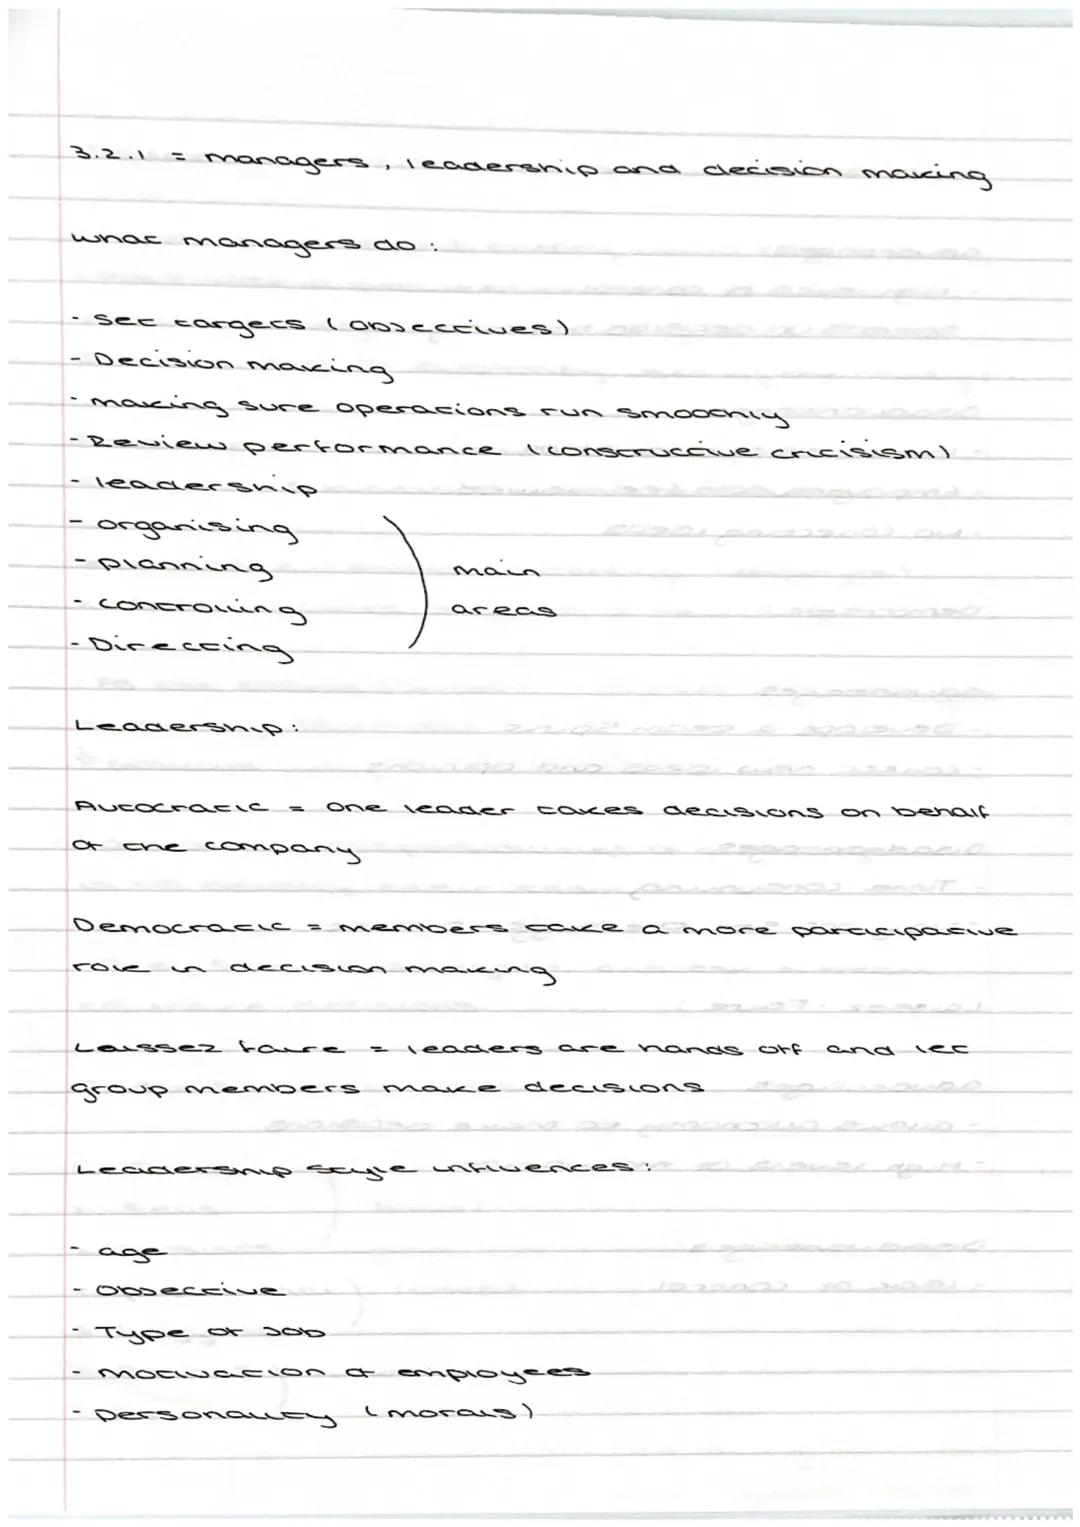 3.2.1 = managers, leadership and decision making
what managers do :
- set targets (objectives)
- Decision making
- making sure operations run smoothly
- Review performance (constructive criticisism)
- leadership
- organising
- planning
- controlling
- Directing
main
areas
Leadership:
Autocratic = one leader takes decisions on behalf
of the company
Democratic = members take a more participative
role in decision making
Laissez faire = leaders are hands off and let
group members make decisions
Leadership style influences:
- age
- objective
- Type of job
- motivation of employees
- personality (morals)